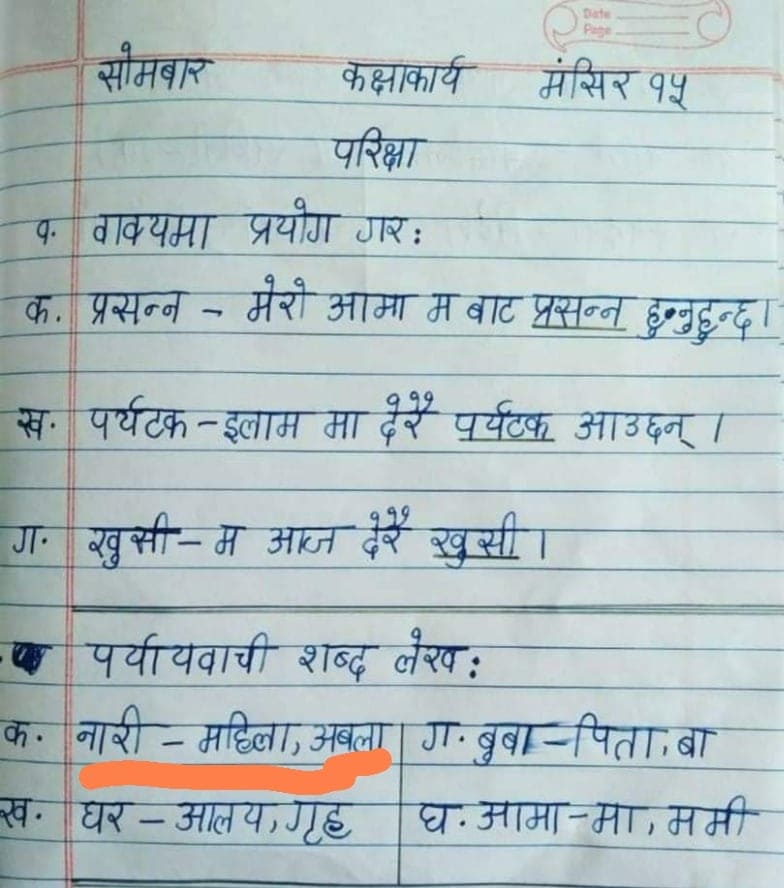 Date
Page
सोमबार कक्षाकार्य मंसिर १५
परिक्षा
१. वाक्यमा प्रयोग गर :
क. प्रसन्न - मेरो आमा म बाट प्रसन्न हुनुहुन्छ ।
ख. पर्यटक - इलाम मा देरै पर्यटक आउछन् ।
ग. खुसी - म आज देरै खुसी ।
पर्यायवाची शब्द लेख :
क. नारी - महिला, अबला ग. बुबा - पिता, बा
ख. घर - आलय, गृह घ. आमा - मा, ममी